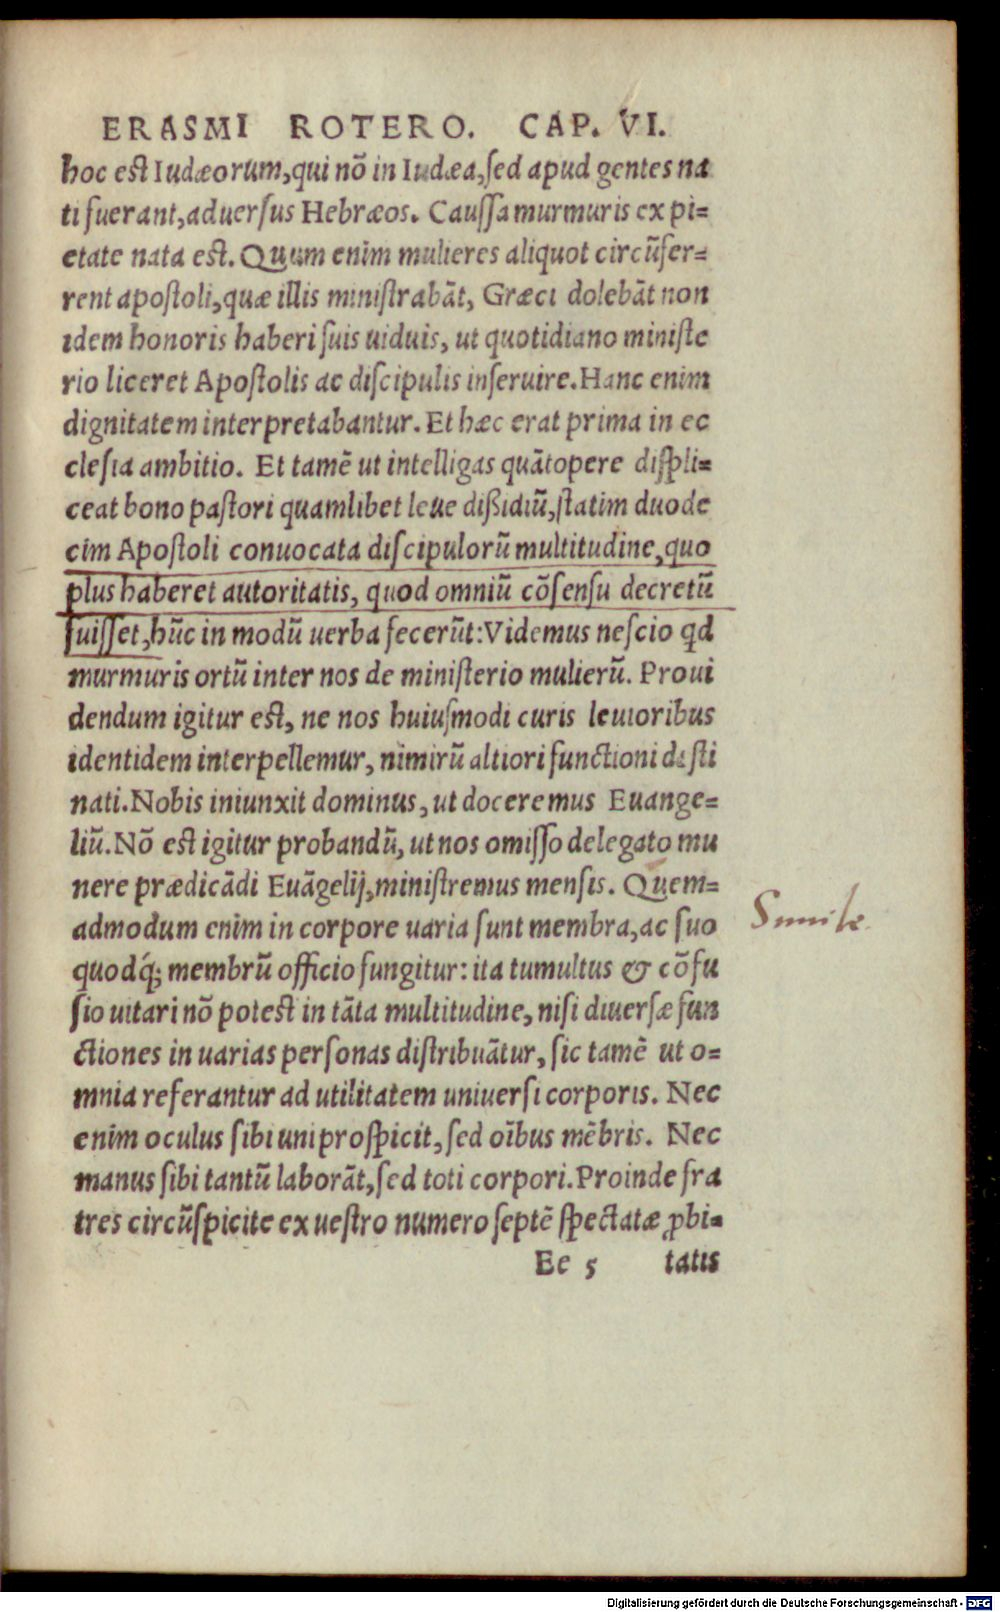 ERASMI ROTERO. CAP. VI.
hoc est Iudæorum, qui nõ in Iudæa, sed apud gentes na
ti fuerant, aduersus Hebræos. Caussa murmuris ex pi=
etate nata est. Quum enim mulieres aliquot circũfer=
rent apostoli, quæ illis ministrabãt, Græci dolebãt non
idem honoris haberi suis uiduis, ut quotidiano ministe
rio liceret Apostolis ac discipulis inseruire. Hanc enim
dignitatem interpretabantur. Et hæc erat prima in ec
clesia ambitio. Et tamẽ ut intelligas quãtopere displi=
ceat bono pastori quamlibet leue dißidiũ, statim duode
cim Apostoli conuocata discipulorũ multitudine, quo
plus haberet autoritatis, quod omniũ cõsensu decretũ
fuisset, hũc in modũ uerba fecerũt: Videmus nescio qd
murmuris ortũ inter nos de ministerio mulierũ. Proui
dendum igitur est, ne nos huiusmodi curis leuioribus
identidem interpellemur, nimirũ altiori functioni desti
nati. Nobis iniunxit dominus, ut doceremus Euange=
liũ. Nõ est igitur probandũ, ut nos omisso delegato mu
nere prædicãdi Euãgelij, ministremus mensis. Quem=
admodum enim in corpore uaria sunt membra, ac suo
quodq́; membrũ officio fungitur: ita tumultus & cõfu
sio uitari nõ potest in tãta multitudine, nisi diuersæ fun
ctiones in uarias personas distribuãtur, sic tamẽ ut o=
mnia referantur ad utilitatem uniuersi corporis. Nec
enim oculus sibi uni prospicit, sed oĩbus mẽbris. Nec
manus sibi tantũ laborãt, sed toti corpori. Proinde fra
tres circũspicite ex uestro numero septẽ spectatæ ꝓbi=
Ee 5 tatis
Simile.
Digitalisierung gefördert durch die Deutsche Forschungsgemeinschaft - DFG